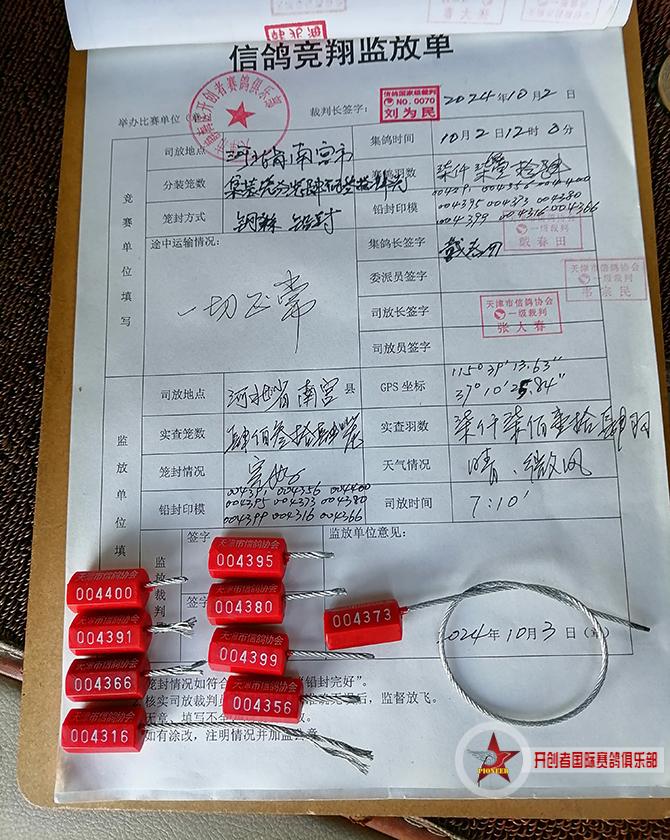 信鸽竞翔监放单
举办比赛单位
裁判长签字:
信鸽国家级裁判
NO.0070
刘为民
2024年10月2日
开创者赛鸽俱乐部
竞赛单位填写
司放地点
河北省南宫市
集鸽时间
10月2日12时8分
分装笼数
羽数
柒仟柒佰壹拾肆
笼封方式
钢丝 铅封
铅封印模
004391 004356 004400
004395 004373 004380
004399 004316 004366
途中运输情况:
一切正常
集鸽长签字
戴春田
一级裁判
戴春田
委派员签字
天津市信鸽协会
一级裁判
韦宗民
司放长签字
天津市信鸽协会
一级裁判
张大春
司放员签字
监放单位填
司放地点
河北省南宫县
GPS坐标
115°39'13.63"
37°10'25.84"
实查笼数
肆佰叁拾肆笼
实查羽数
柒仟柒佰壹拾肆羽
笼封情况
完好
天气情况
晴、微风
铅封印模
004391 004356 004400
004395 004373 004380
004399 004316 004366
司放时间
7:10'
监放裁判
签字
签
监放单位意见:
024年10月3日(章)
天津市信鸽协会
004395
天津市信鸽协会
004400
天津市信鸽协会
004380
004373
天津市信鸽协会
004391
天津市信鸽协会
004399
天津市信鸽协会
004366
天津市信鸽协会
004356
天津市信鸽协会
004316
笼封情况如符合
铅封完好”。
核实司放裁判员
后,监督放飞。
填写不
如有涂改,注明情况并加盖公章
PIONEER
开创者国际赛鸽俱乐部